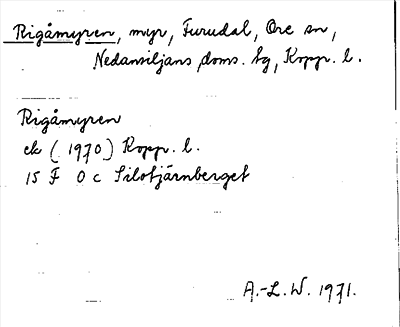 Rigåmyren, myr, Furudal, Ore sn,
Nedansiljans doms. hg, Kopp. l.
Rigåmyren
ek (1970) Kopp. l.
15 F 0 c Silotjärnberget
A.-L. W. 1971.